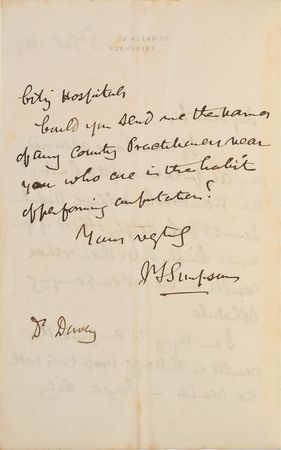 City Hospitals
Could you send me the names
of any Country Practitioners near
you who are in the habit
of performing amputation?
Yours
J Y Simpson
Dr Davey